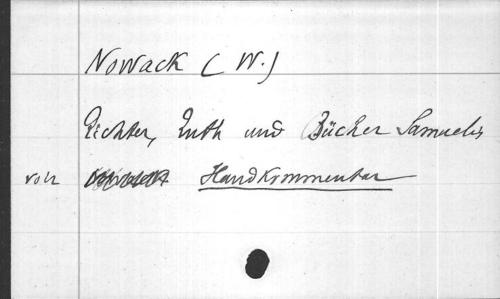 Nowack (W.)
Richter, Ruth und Bücher Samuelis
voir Handkommentar